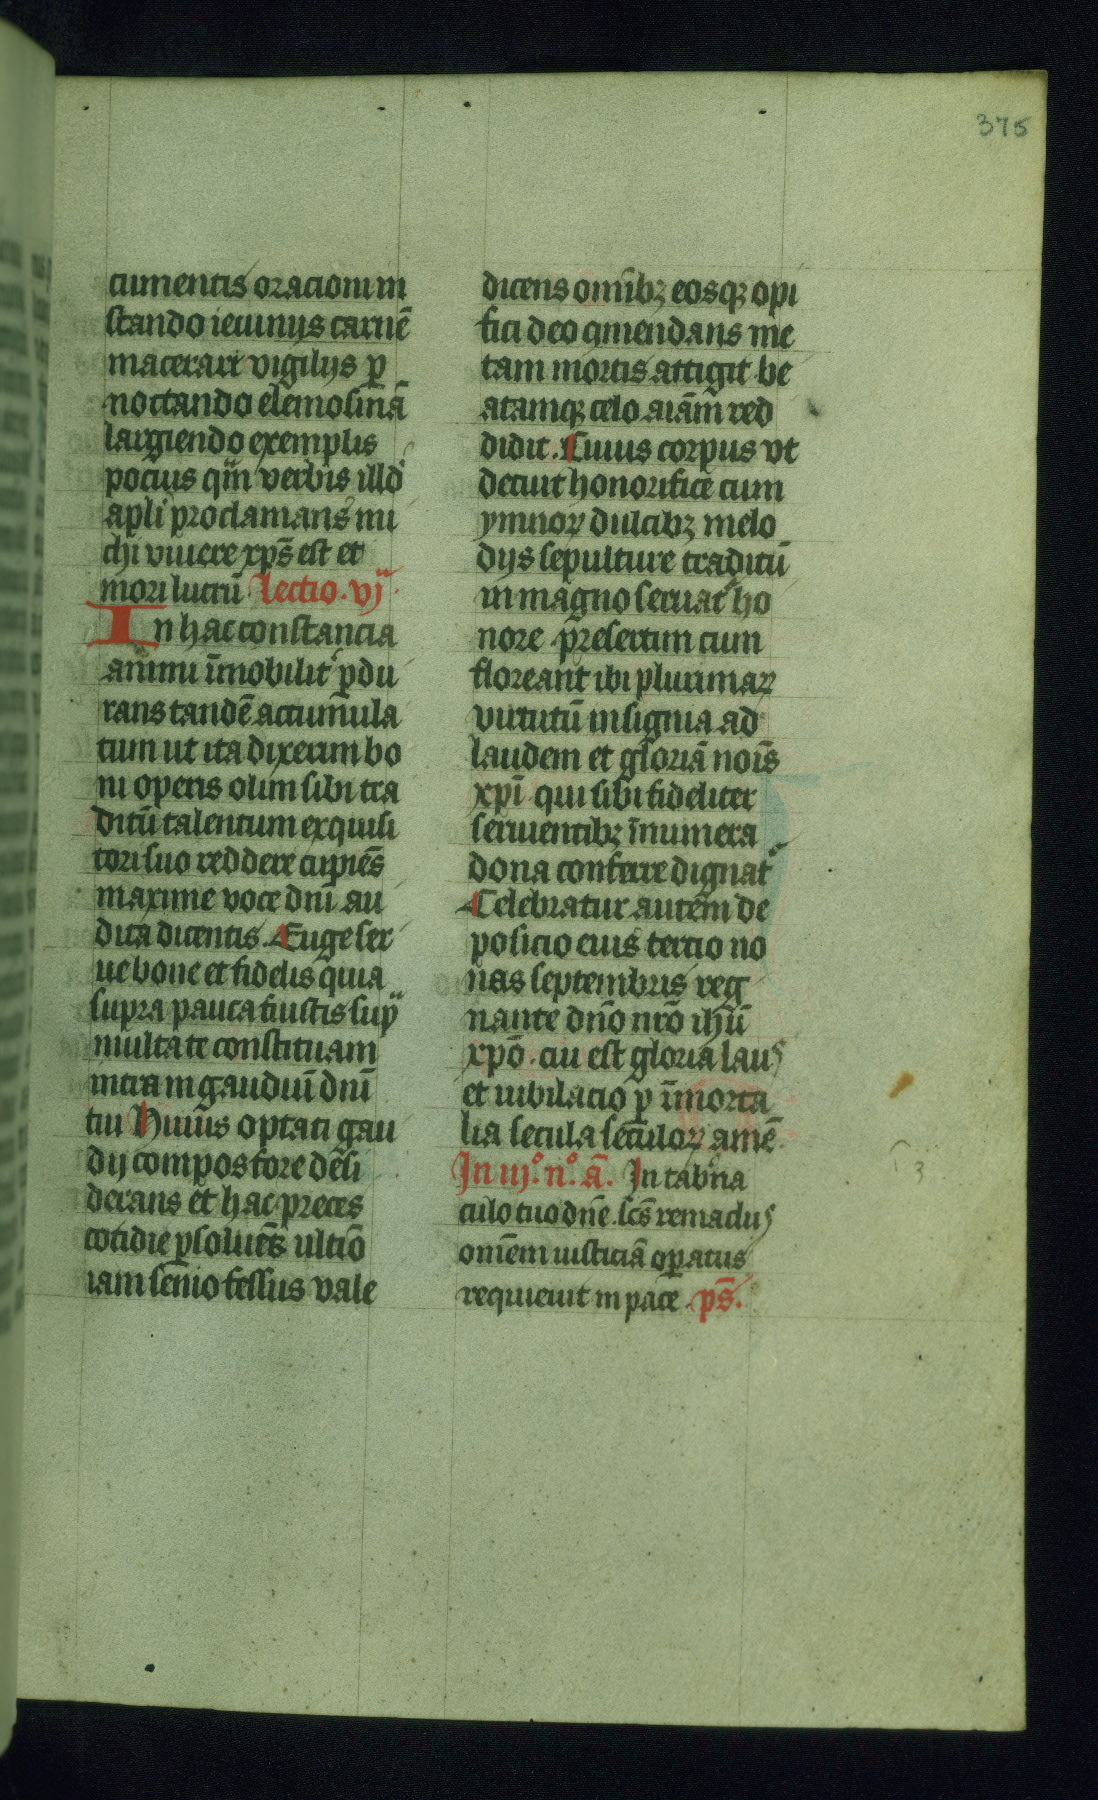 375
cumentis oracioni in
stando ieiunijs carnē
macerare vigilijs ꝑ
noctando elemosinā
largiendo exemplis
pocius qm̄ verbis illd
apli proclamans mi
chi viuere xp̄s est et
mori lucrū Lectio. vj
In hac constancia
animi īmobilit ꝑdu
rans tandē accumula
tum ut ita dixerim bo
ni operis olim sibi tra
ditū talentum exquisi
tori suo reddere cupiēs
maxime voce dn̄i au
dita dicentis. Euge ser
ue bone et fidelis quia
supra pauca fuistis suꝑ
multa te constituam
intra in gaudiū dn̄i
tui Huius optati gau
dij compos fore desi
derans et hac preces
cotidie ꝑsoluēs ultīo
iam senio fessus vale
dicens om̄ibꝫ eosqꝫ opi
fici deo ꝯmendans me
tam mortis attigit be
atamqꝫ celo aīam red
didit. Cuius corpus vt
decuit honorifice cum
ymnoꝝ dulcibꝫ melo
dijs sepulture traditū
in magno seruat ho
nore presertim cum
floreant ibi plurimaꝝ
virtutū insignia ad
laudem et gloriā noīs
xpī qui sibi fideliter
seruientibꝫ īnumera
dona conferre dignat
Celebratur autem de
posicio eius tercio no
nas septembris reg
nante dn̄o nr̄o ihū
xpō. cui est gloria laus
et iubilacio ꝑ īmorta
lia secula seculoꝝ amē
In iijº. nº. ā. In tabna
culo tuo dn̄e. scs̄ remaclus
omem iusticiā oꝑatus
requieuit in pace. ps̄.
3